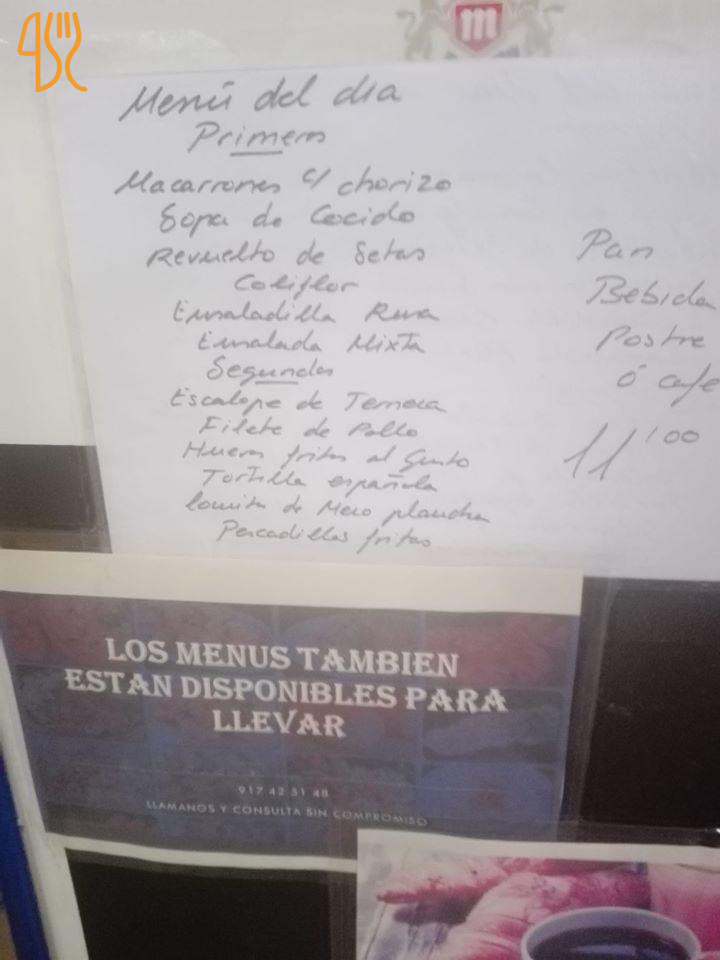 m
Menú del dia
Primeros
Macarrones c/ chorizo
Sopa de Cocido
Revuelto de Setas
Coliflor
Ensaladilla Rusa
Ensalada Mixta
Segundos
Escalope de Ternera
Filete de Pollo
Huevos fritos al Gusto
Tortilla española
lomitos de Mero plancha
Pescadillas fritas
Pan
Bebida
Postre
ó cafe
11'00
LOS MENUS TAMBIEN
ESTAN DISPONIBLES PARA
LLEVAR
917 42 51 48
LLAMANOS Y CONSULTA SIN COMPROMISO